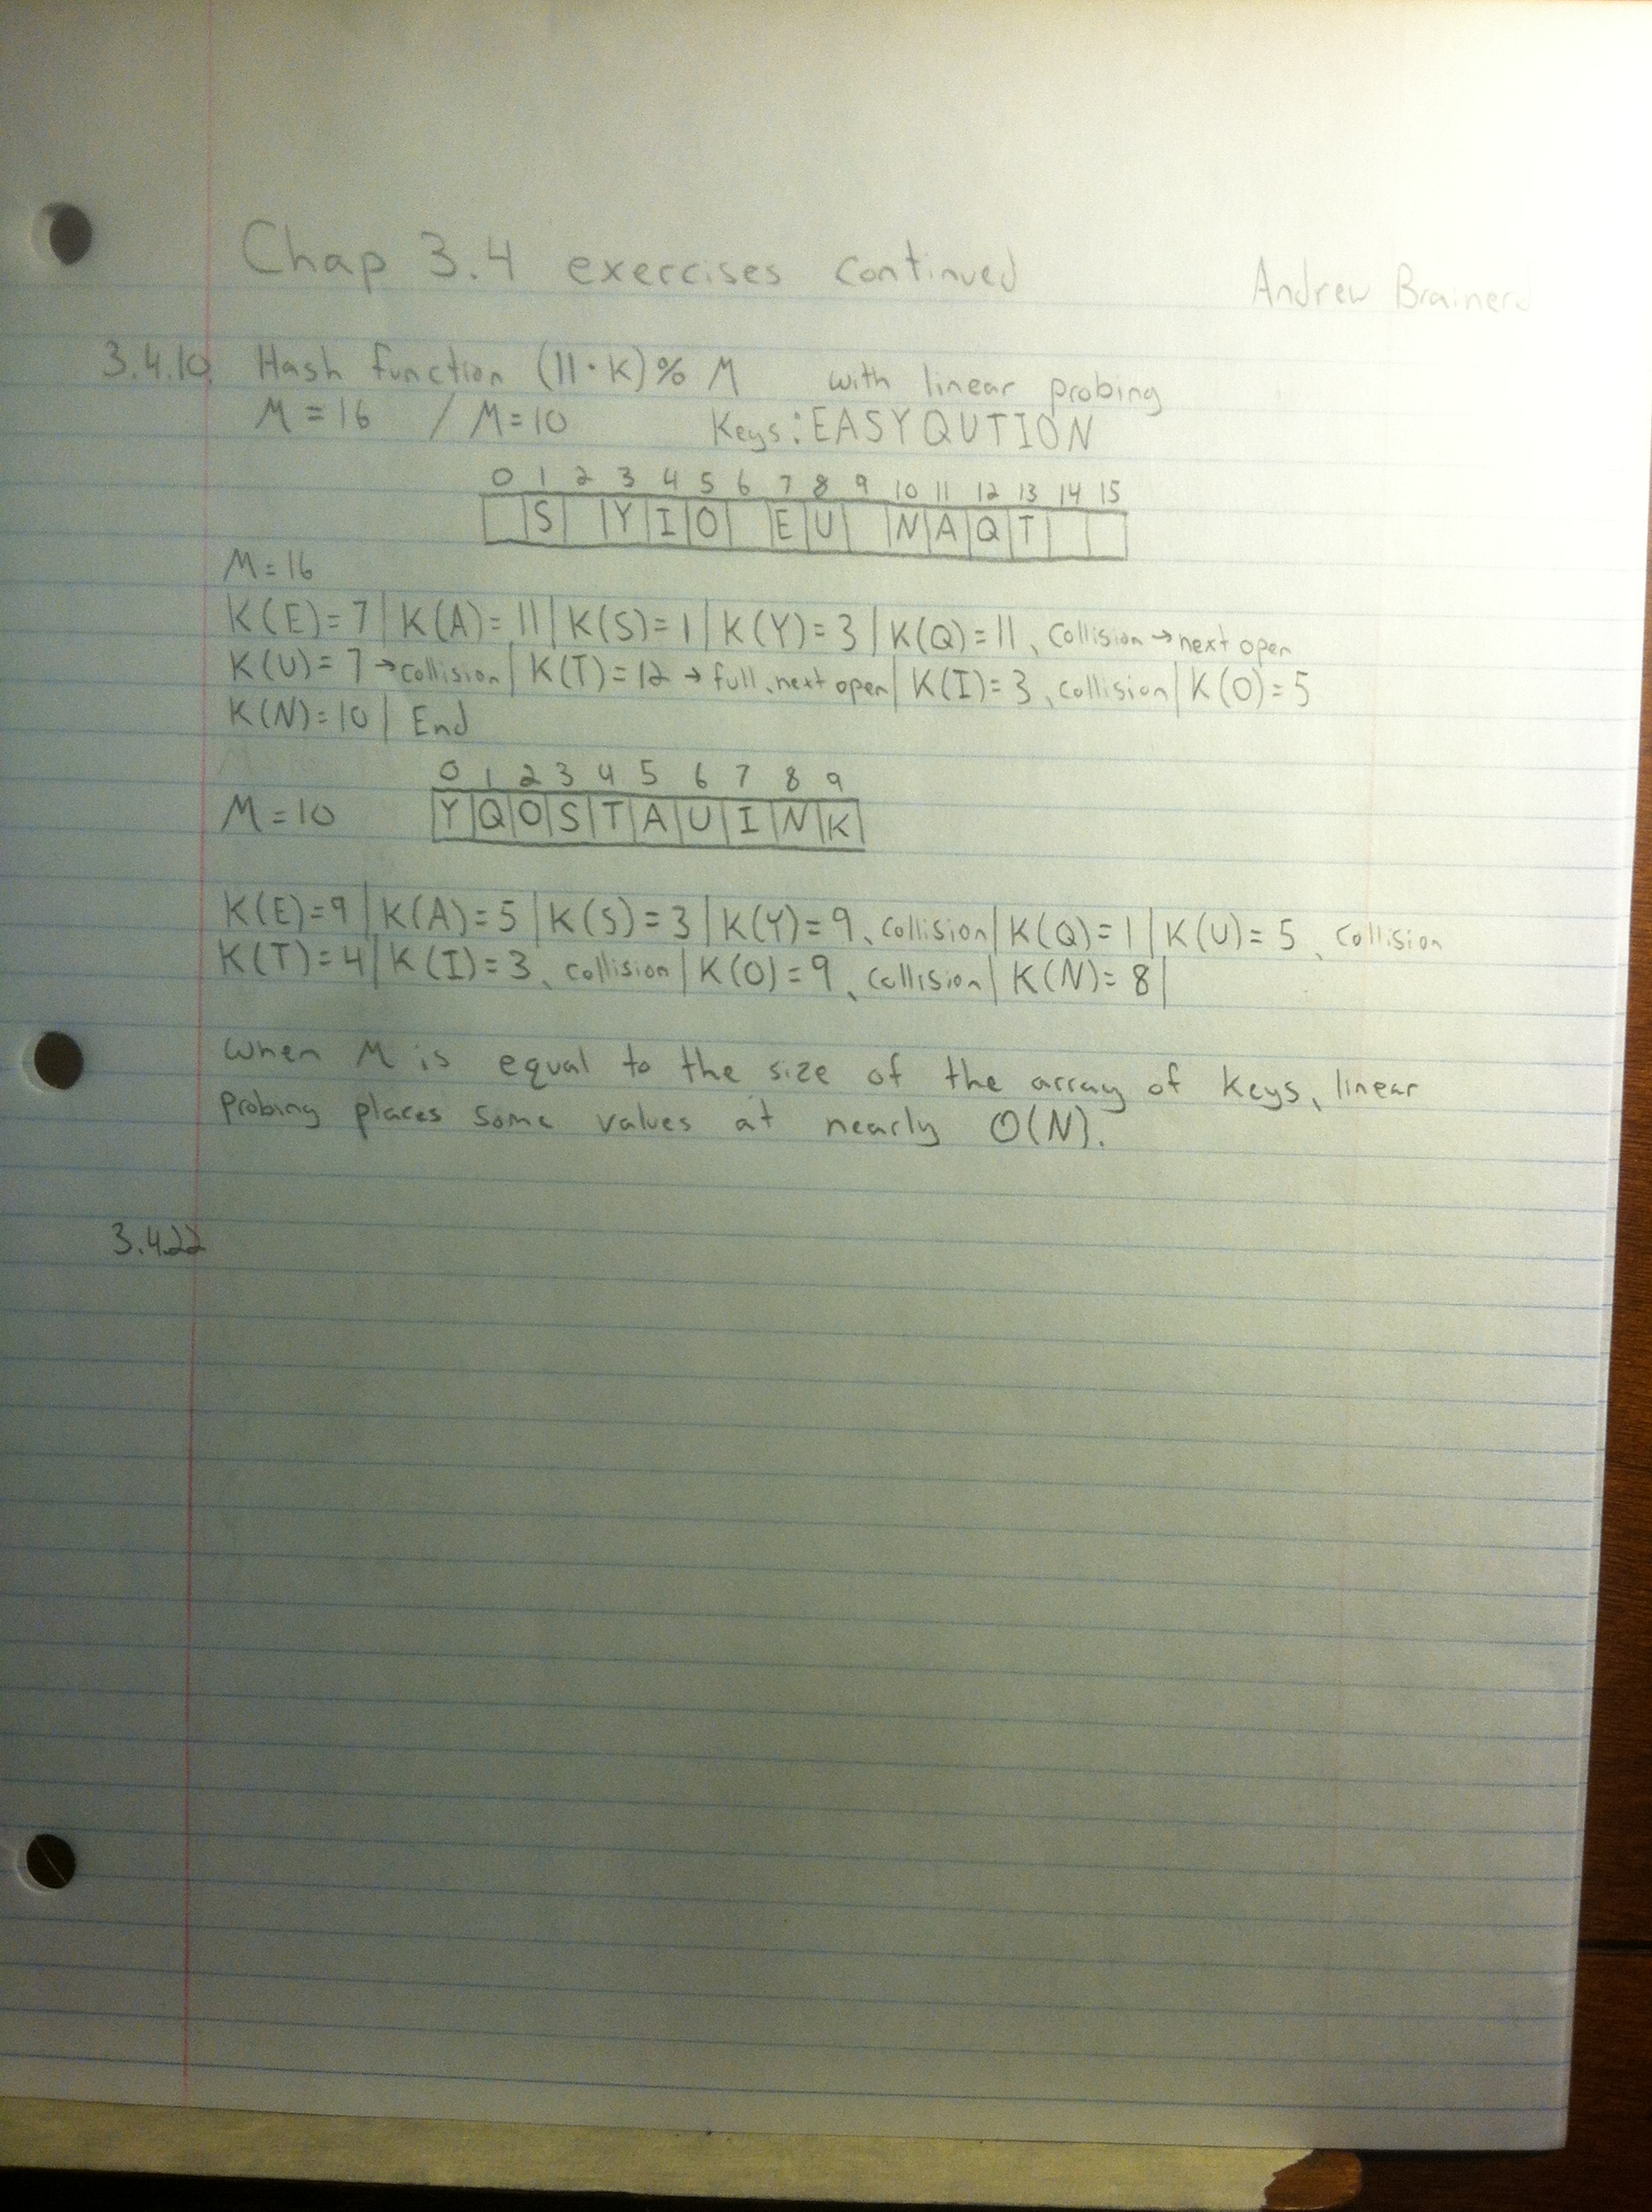 Chap 3.4 exercises continued Andrew Brainerd
3.4.10. Hash function (11·K)% M with linear probing
M = 16 / M=10 Keys: EASYQUTION
0 1 2 3 4 5 6 7 8 9 10 11 12 13 14 15
S Y I O E U N A Q T
M=16
K(E)=7 | K(A)=11 | K(S)=1 | K(Y)=3 | K(Q)=11, collision → next open
K(U)=7 → collision | K(T)=12 → full, next open | K(I)=3, collision | K(O)=5
K(N)=10 | End
0 1 2 3 4 5 6 7 8 9
M=10 Y Q O S T A U I N K
K(E)=9 | K(A)=5 | K(S)=3 | K(Y)=9, collision | K(Q)=1 | K(U)=5, collision
K(T)=4 | K(I)=3, collision | K(O)=9, collision | K(N)=8 |
When M is equal to the size of the array of keys, linear
probing places some values at nearly O(N).
3.4.22